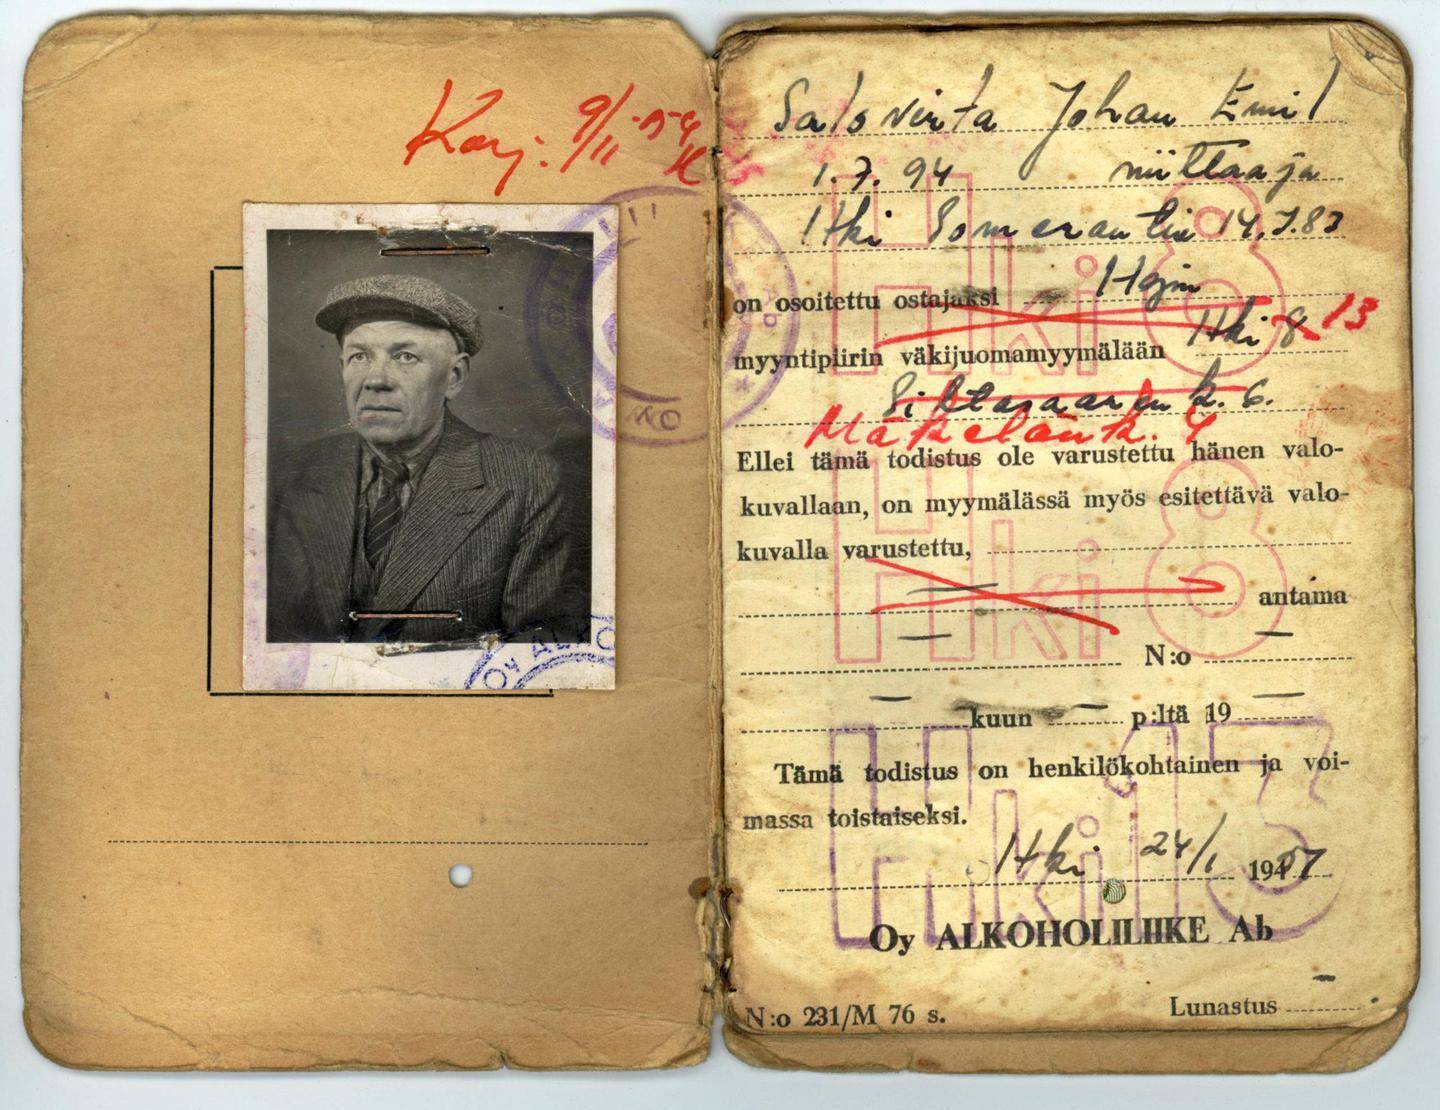 Korj. 9/11-54
OY ALKO
Salovirta Johan Emil
1.7. 94 niittaaja
Hki Someron tie 14.7.83
on osoitettu ostajaksi Hgin
myyntipiirin väkijuomamyymälään Hki 8 13
Siltasaaren k. 6.
Mäkelänk. 4
Ellei tämä todistus ole varustettu hänen valo-
kuvallaan, on myymälässä myös esitettävä valo-
kuvalla varustettu,
antama
N:o
kuun p:ltä 19
Tämä todistus on henkilökohtainen ja voi-
massa toistaiseksi.
Hki 24/1 1947
Oy ALKOHOLILIIKE Ab
N:o 231/M 76 s. Lunastus
Hki 8
Hki 8
Hki 13